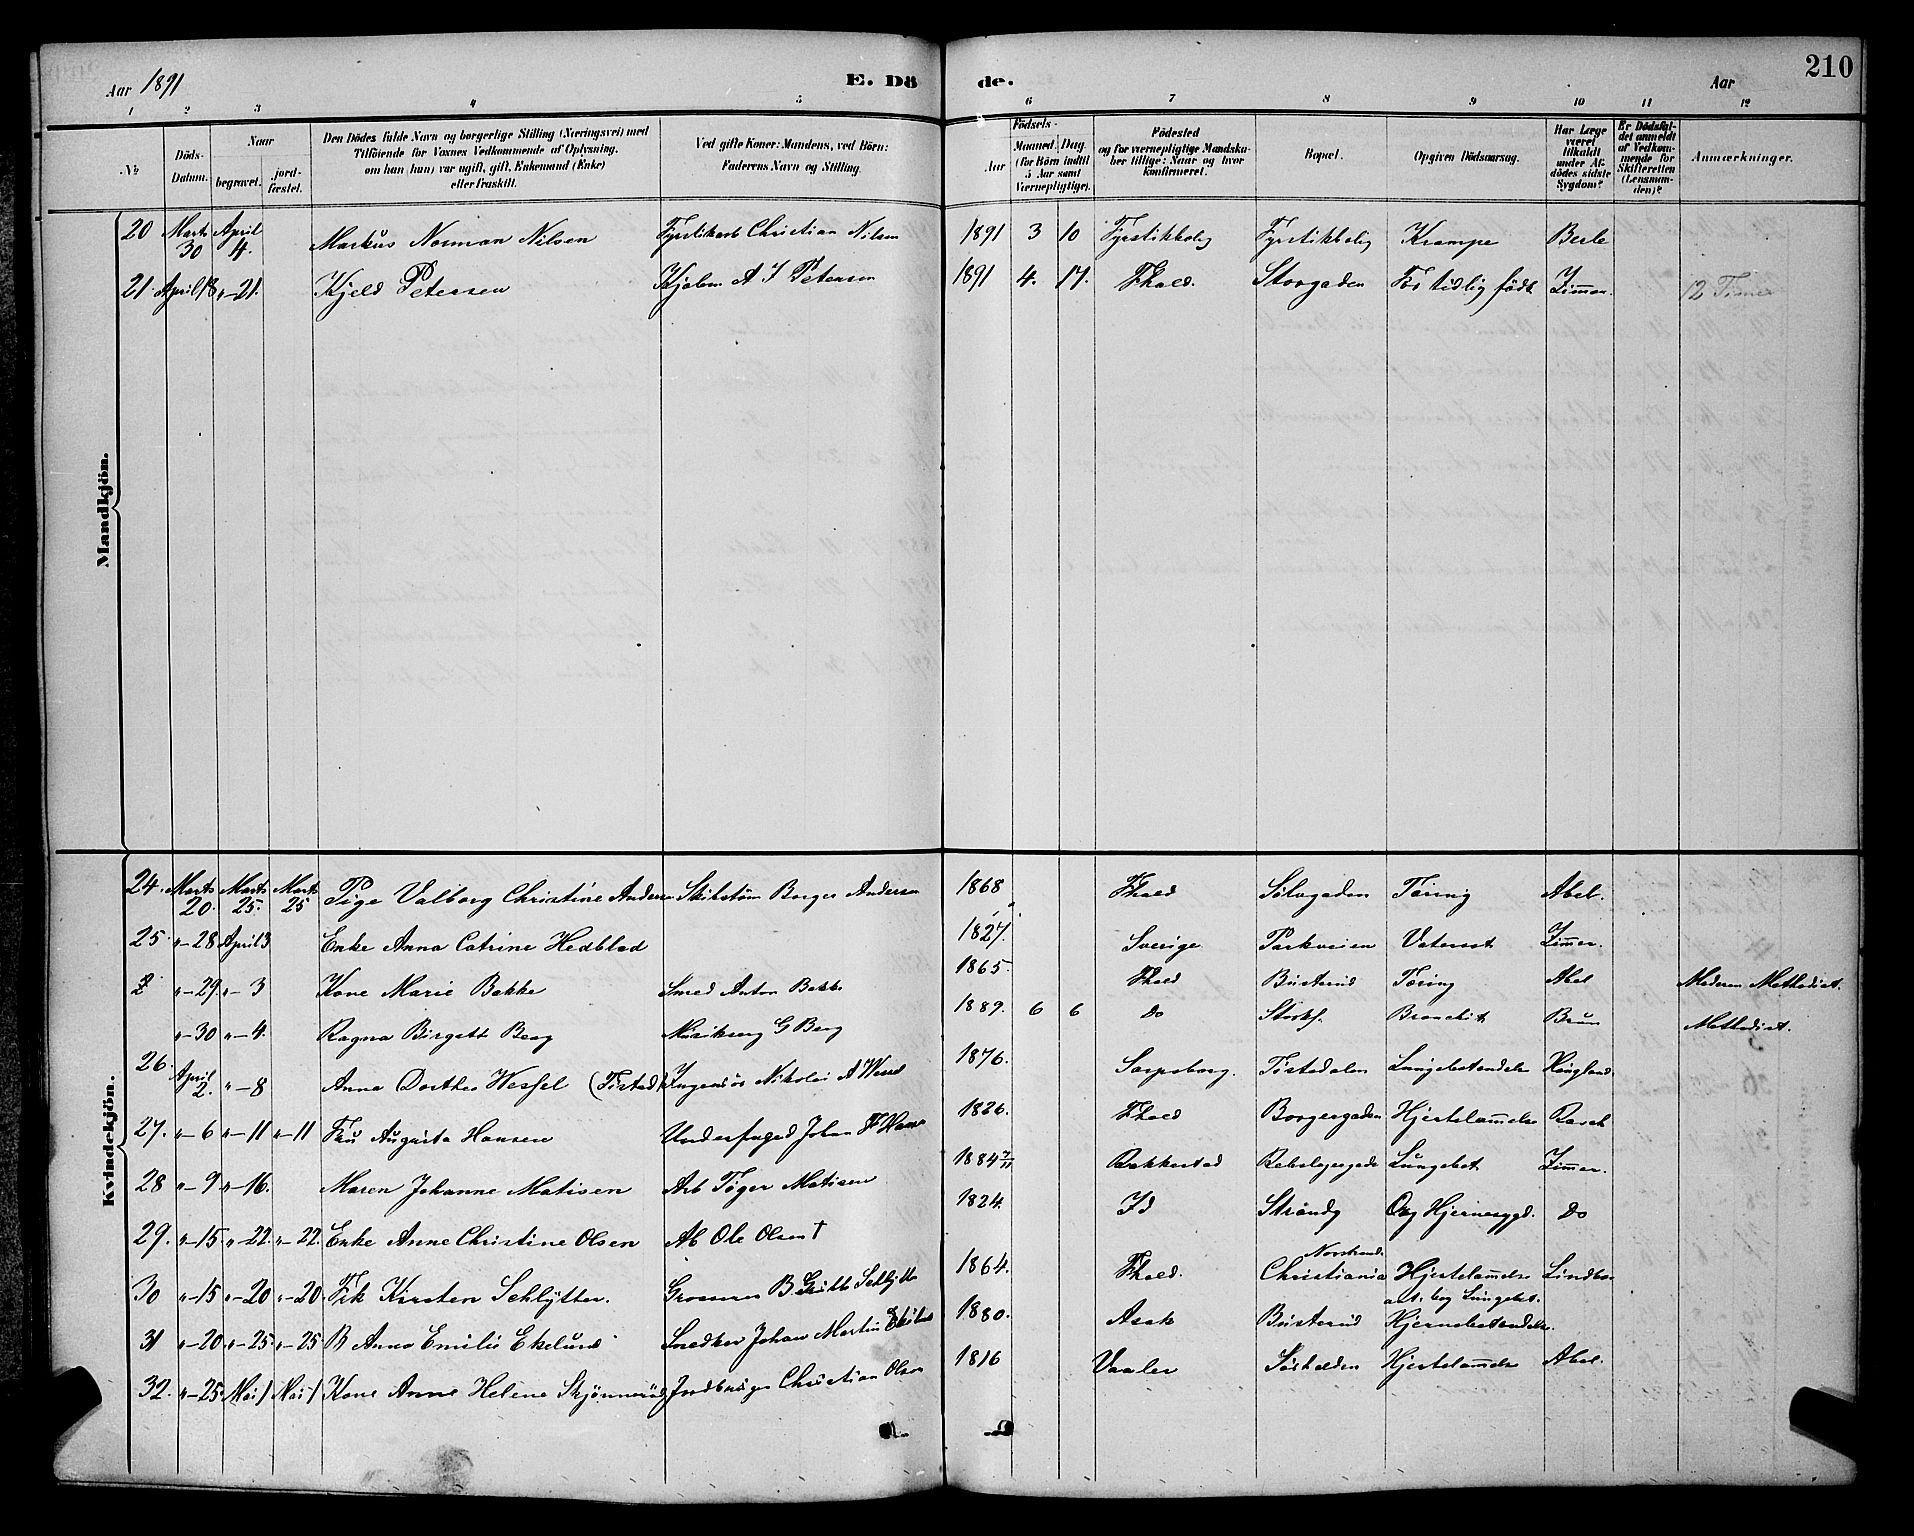 210
Aar 1891
E. Dö
de.
Aar
1 2 3 4 5 6 7 8 9 10 11 12
No
Döds-Datum.
Naar
begravet.
jord-fæstet.
Den Dödes fulde Navn og borgerlige Stilling (Næringsvei) med
Tilföiende for Voxnes Vedkommende af Oplysning,
om han (hun) var ugift, gift, Enkemand (Enke)
eller fraskilt.
Ved gifte Koner: Mandens, ved Börn:
Faderens Navn og Stilling.
Födsels-
Aar
Maaned. Dag.
(for Börn indtil
5 Aar samt
Værnepligtige).
Födested
og for værnepligtige Mandska-
ber tillige: Naar og hvor
konfirmeret.
Bopæl.
Opgiven Dödsaarsag.
Har Læge
været
tilkaldt
under Af-
dödes sidste
Sygdom?
Er Dödsfal-
det anmeldt
af Vedkom-
mende for
Skifteretten
(Lensman-
den)?
Anmærkninger.
Mandkjön.
20 Marts 30 April 4. Markus Norman Nilsen Fyrstikarb Christian Nilsen 1891 3 10 Fyrstikbolig Fyrstikbolig Krampe Berle
21. April 18 "-21. Kjeld Petersen Kjøbm A I Petersen 1891 4. 17. Fhald. Storgaden For tidlig født Zimmer. 12 Timer
Kvindekjön.
24. Marts 20. Marts 25. Marts 25 Pige Valborg Christine Andersen Borger Andersen 1868 Fhald Sølvgaden Tæring Abel.
25. "-28 April 3 Enke Anna Catrine Hedblad 1827. Sverige Parkveien Vatersot Zimmer.
"-29. "-3 Kone Marie Bakke Smed Anton Bakke 1865. Fhald Busterud Tæring Abel Moderen Methodist.
"-30 "-4. Ragna Birgitt Berg G Berg 1889. 6 6 Do Bronchit Bruun Methodist.
26. April 2. "-8 Anna Dorthea Wessel (Tistedal) Ingeniør Nikolai A Wessel 1876. Sarpsborg. Tistedalen Lungebetændelse
27. "-6 "-11 "-11 Fru Augusta Hansen Underfoged Johan F Hansen 1826. Fhald Borgergaden Hjertelammelse Rasch
28 "-9 "-16. Maren Johanne Matisen Arb Tøger Matisen 1884 7/11 Rakkestad Lungebet. Zimmer.
29. "-15. "-22. "-22. Enke Anne Christine Olsen Ab Ole Olsen † 1824. Id Hjernesygd. Do
30 "-15 "-20 "-20. Frk Kirsten Schlytter. 1864. Fhald. Norstrand. Christiania Hjertelammelse Lungebet.
31 "-20 "-25 "-25 B Anna Emilie Ekelund Snedker Johan Martin 1880. Asak Busterud Hjernebetændelse.
32. "-25 Mai 1 Mai 1 Kone Anne Helene Skjønnerud Indbrüger Christian Olsen 1816 Vaaler Sørhalden Hjertelammelse Abel.